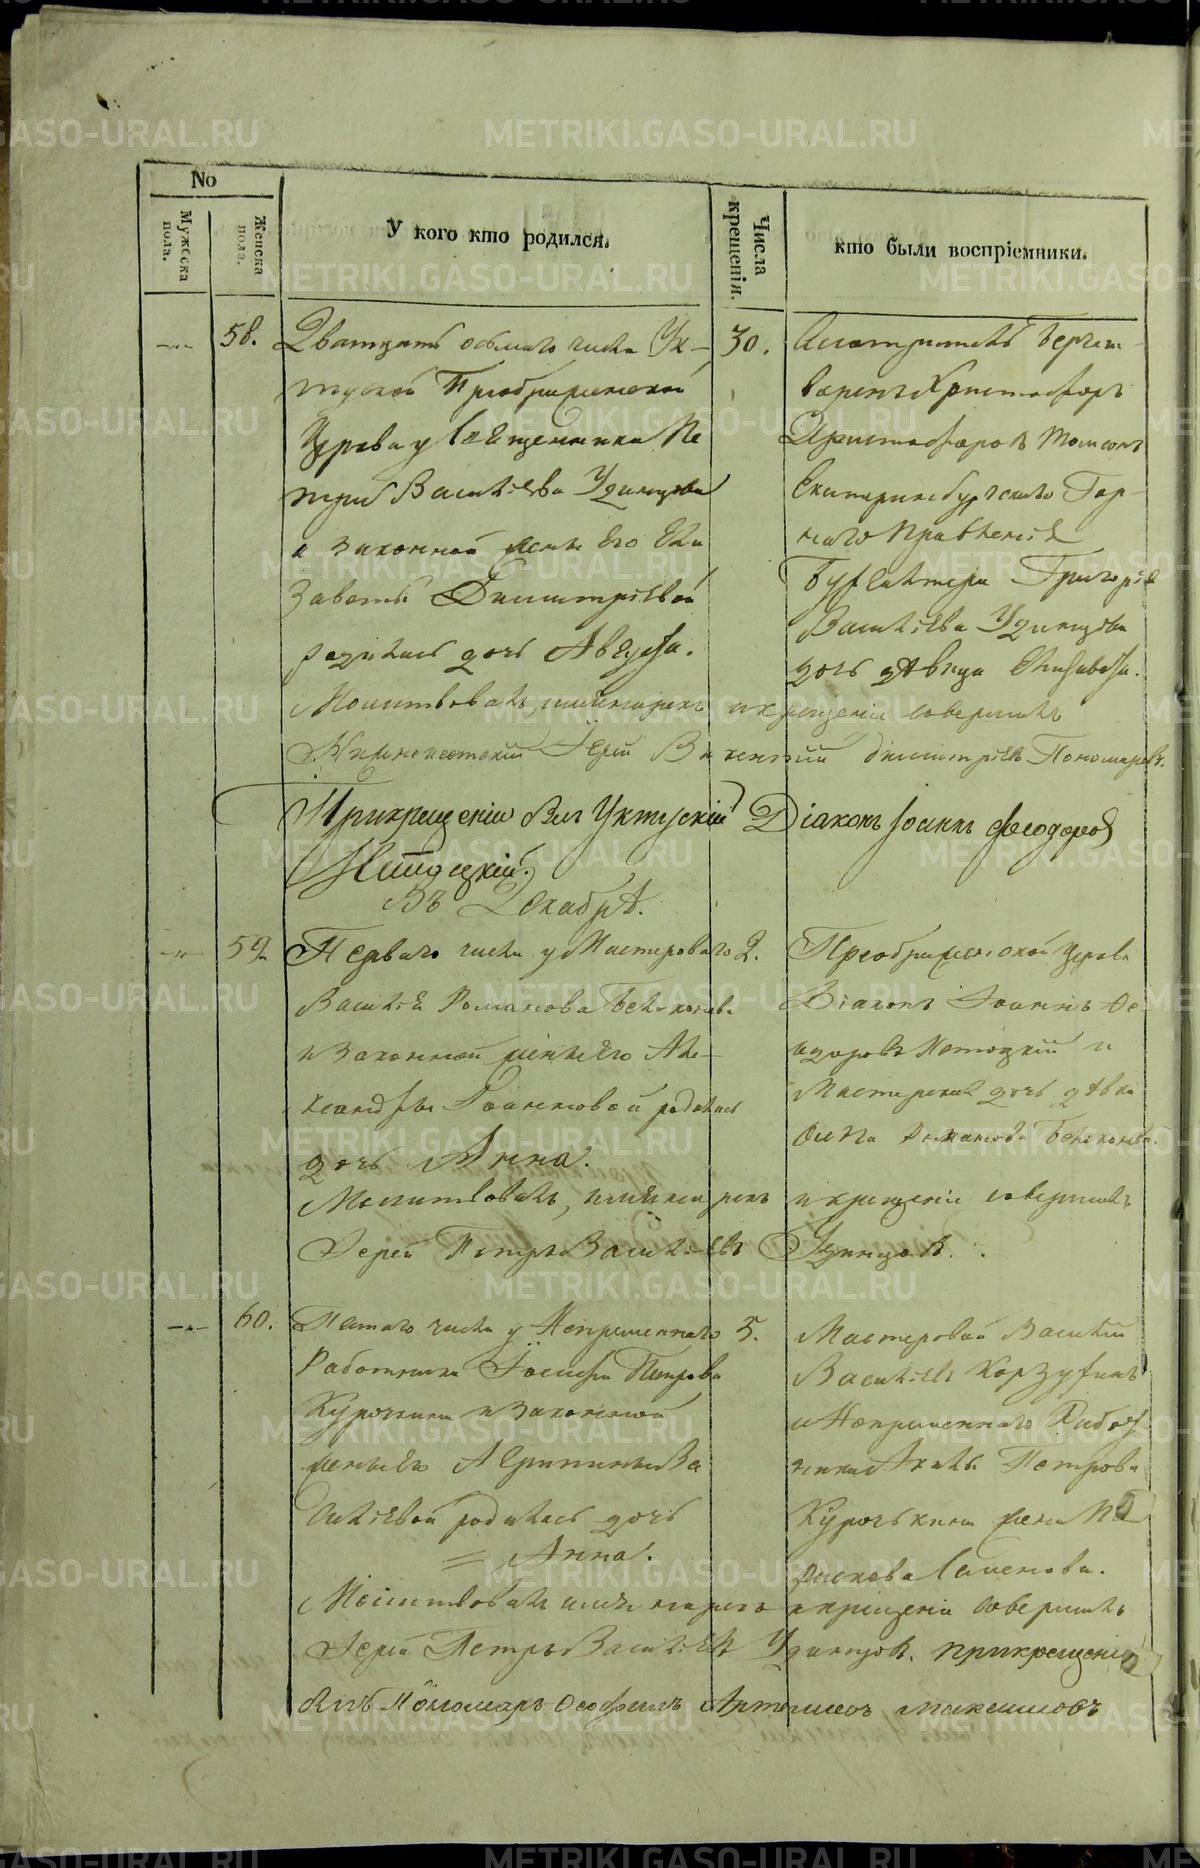 No
Мужеска пола.
Женска пола.
У кого кто родился.
Числа крещенія.
кто были воспріемники.
58. Дватцать осьмаго числа Ук- 30.
тускої Преображенской
Церкви у Священника Пе
тра Василіева Удинцова
и законной жены Его Ели
заветы Димитріевой
родилась дочь Августа.
Берггеш
воренъ Христофоръ
Христофоровъ Томсонъ
Екатеринбургскаго Гор-
наго Правленія
Бухгалтера Григорія
Василіева Удинцова
дочь дѣвица Елисавета.
Молитвовалъ, имянарекъ и крещеніе совершилъ
Іерей Викентій Димитріевъ Пономаревъ.
При крещеніи былъ Уктускій Діаконъ Іоаннъ Феодоровъ
Въ Декабрѣ.
59. Перваго числа у Мастероваго 2.
Василія Романова Белоконева
и законной жены Его Але-
ксандры Іоанновой родилась
дочь Анна.
Преображенской Церкви
Діаконъ Іоаннъ Ѳе
одоровъ и
дочь дѣвка
Романова Белоконева.
Молитвовалъ, имя нарекъ и крещеніе совершилъ
Іерей Петръ Василіевъ Удинцовъ.
60. Пятаго числа у Непременнаго 5.
Работника Іосифа Петрова
Курочкина и законной
жены Его Агрипины Ва
силіевой родилась дочь
Анна.
Мастеровой Василій
Василіевъ Корзухинъ
и Непременнаго Работ
ника Петрова
Курочькина жена Па
раскева Семенова.
Молитвовалъ имя нарекъ и крещеніе совершилъ
Іерей Петръ Василіевъ Удинцовъ. при крещеніи
былъ Пономарь Ѳеофилъ Максимовъ
METRIKI.GASO-URAL.RU